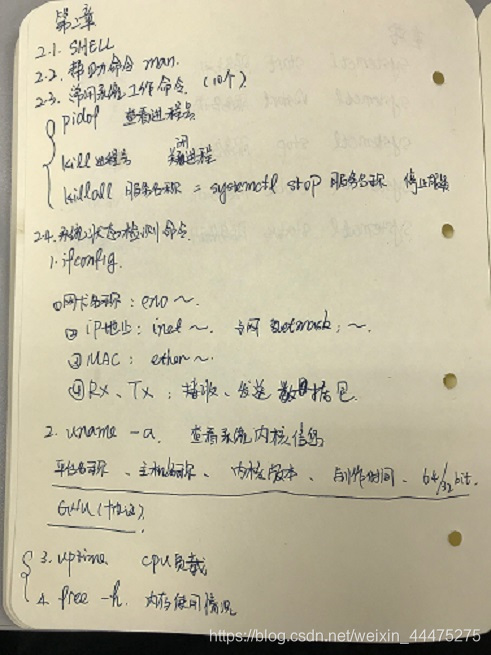 第二章
2.1. SHELL
2.2. 帮助命令 man.
2.3. 常用系统工作命令. (10个)
pidof 查看进程号
kill 进程号 关闭进程
killall 服务名称 = systemctl stop 服务名称 停止服务
2.4. 系统状态检测命令.
1. ifconfig.
①网卡名称: eno ~.
② IP地址: inet ~. 子网 netmask: ~.
③ MAC: ether ~.
④ RX、TX: 接收、发送 数据包.
2. uname -a. 查看系统内核信息
平台名称、主机名称、内核版本、时间、64/32 bit.
GNU (协议).
3. uptime cpu负载
4. free -h. 内存使用情况
https://blog.csdn.net/weixin_44475275